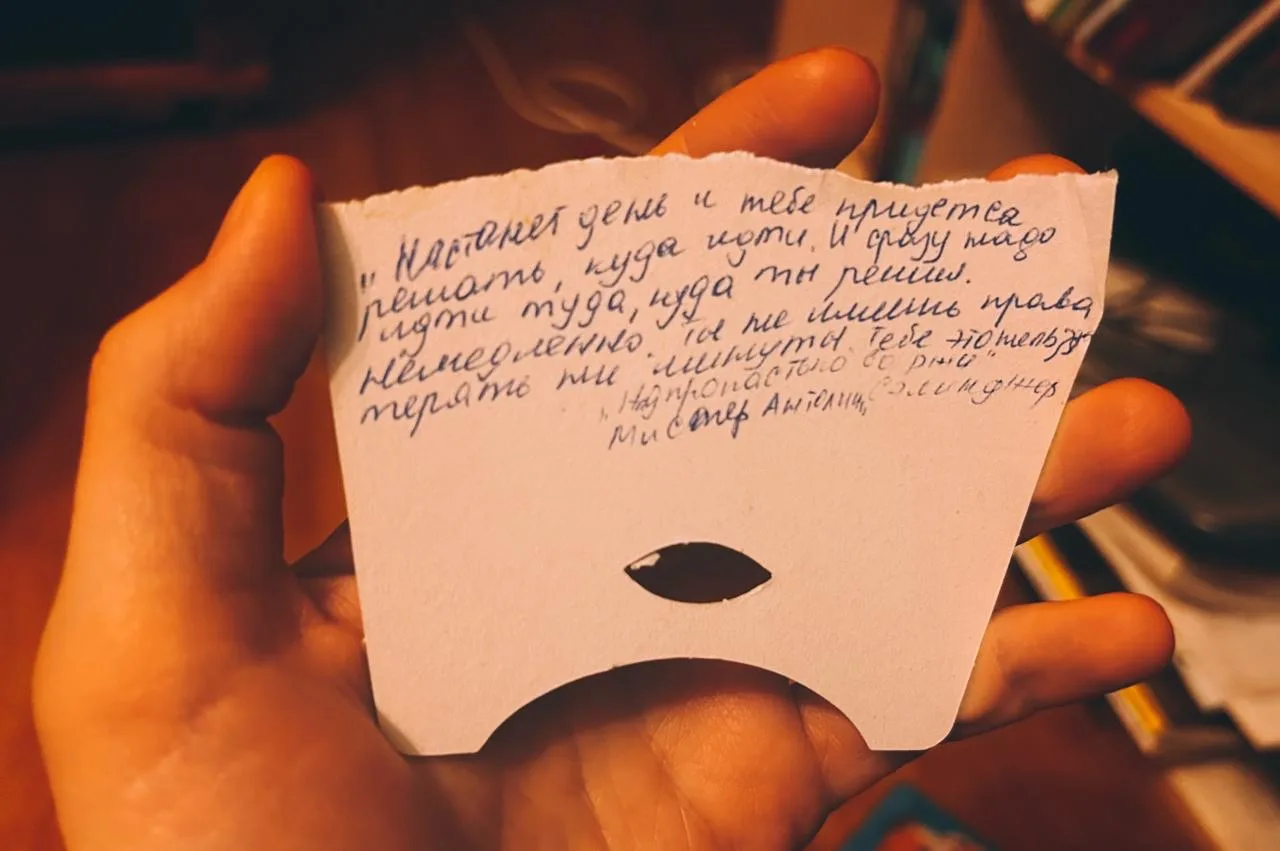 „Настанет день и тебе придется
решать, куда идти. И сразу надо
идти туда, куда ты решил.
Немедленно. Ты не имеешь права
терять ни минуты. Тебе это нельзя
„Над пропастью во ржи"
Мистер Антолини, Сэлинджер